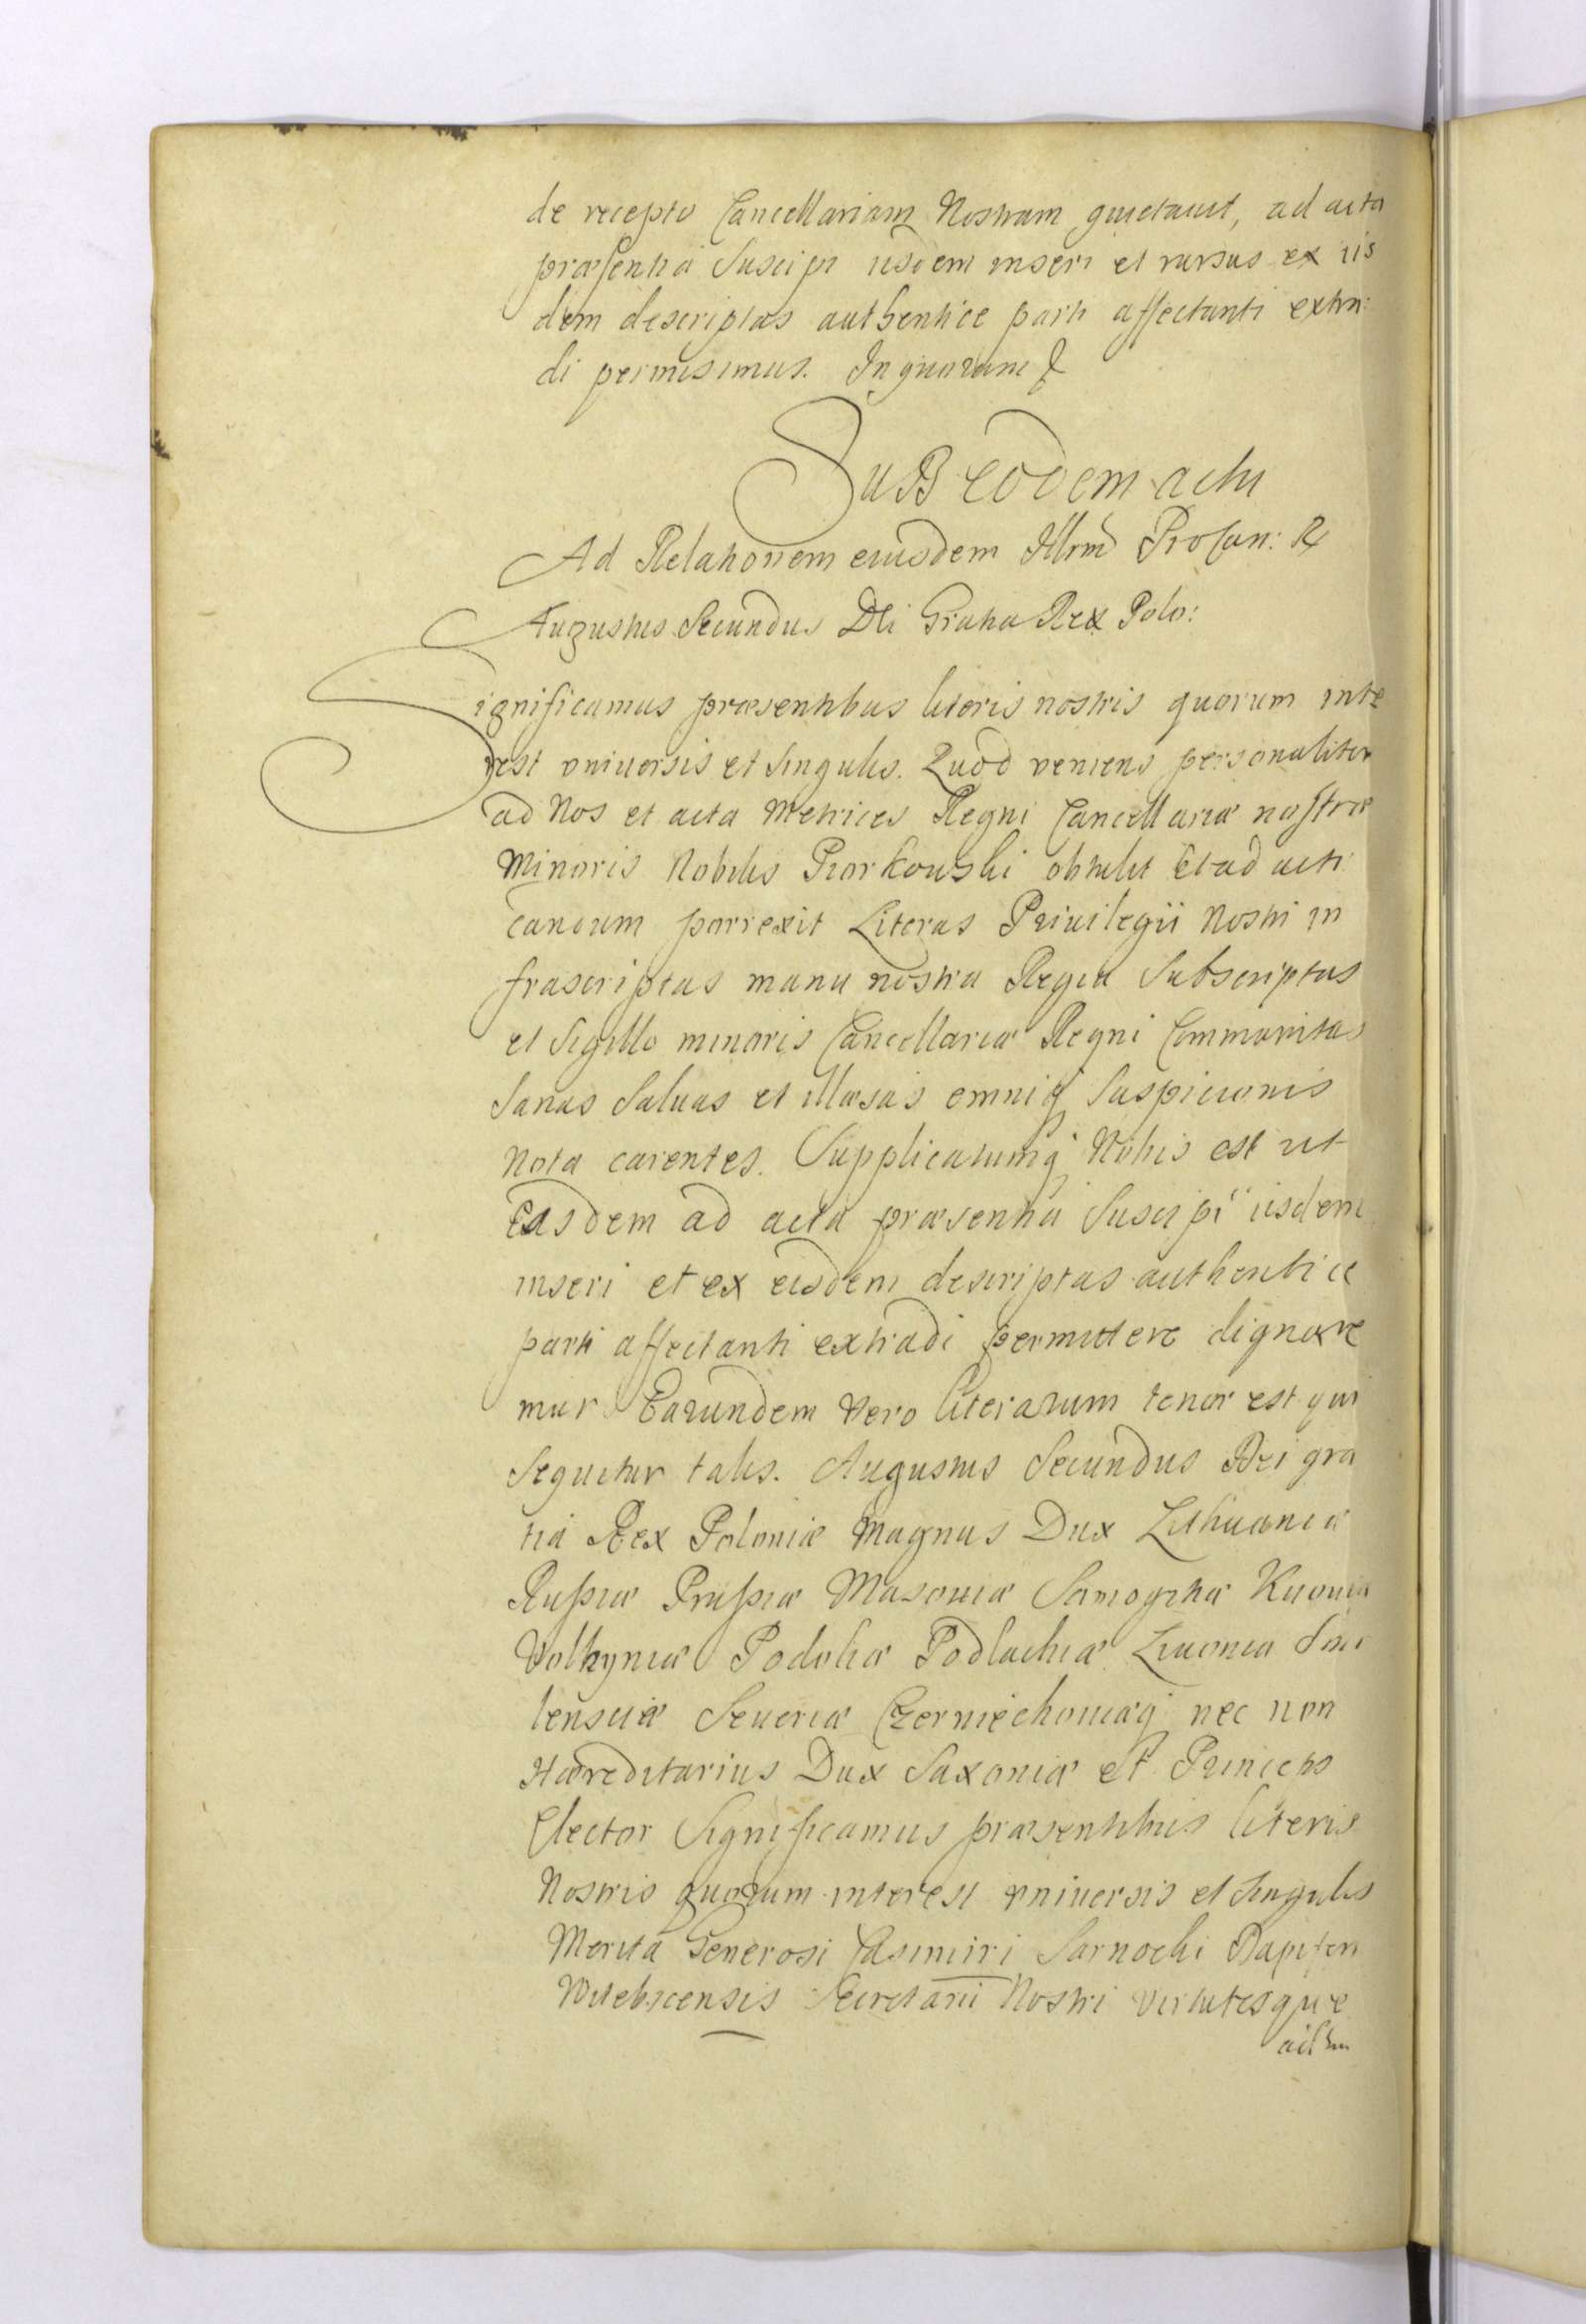 de recepto Cancellariam Nostram quietauit, ad acta
præsentia Suscipi iisdem inseri et rursus ex iis
dem descriptas authentice parti affectanti extra:
di permisimus. In quorum &
SuB eodem actu
Ad Relationem eiusdem Illrmi ProCan: R
Augustus Secundus Dei Gratia Rex Polo:
Significamus præsentibus literis nostris quorum inte
rest vniuersis et singulis. Quod veniens personaliter
ad Nos et acta Metrices Regni Cancellariæ nostræ
Minoris Nobilis Piorkowski obtulit et ad acti
candum porrexit Literas Priuilegii Nostri in
frascriptas manu nostra Regia Subscriptas
et Sigillo minoris Cancellariæ Regni Communitas
Sanas Saluas et illæsas omniq Suspicionis
Nota carentes. Supplicatumq Nobis est ut
Easdem ad acta præsentia Suscipi iisdem
inseri et ex eisdem descriptas authentice
parti affectanti extradi permittere dignare
mur Earundem vero literarum tenor est qui
Sequitur talis. Augustus Secundus Dei gra
tia Rex Poloniæ Magnus Dux Lithuaniæ
Russiæ Prussiæ Masouiæ Samogitiæ Kiiouiæ
Volhyniæ Podoliæ Podlachiæ Liuoniæ Smo
lensciæ Seueriæ Czerniechouiæq nec non
Hæreditarius Dux Saxoniæ et Princeps
Elector Significamus præsentibus literis
Nostris quorum interest vniuersis et singulis
Merita Generosi Casimiri Sarnocki Dapiferi
Vitebscensis Secretarii Nostri virtutesque